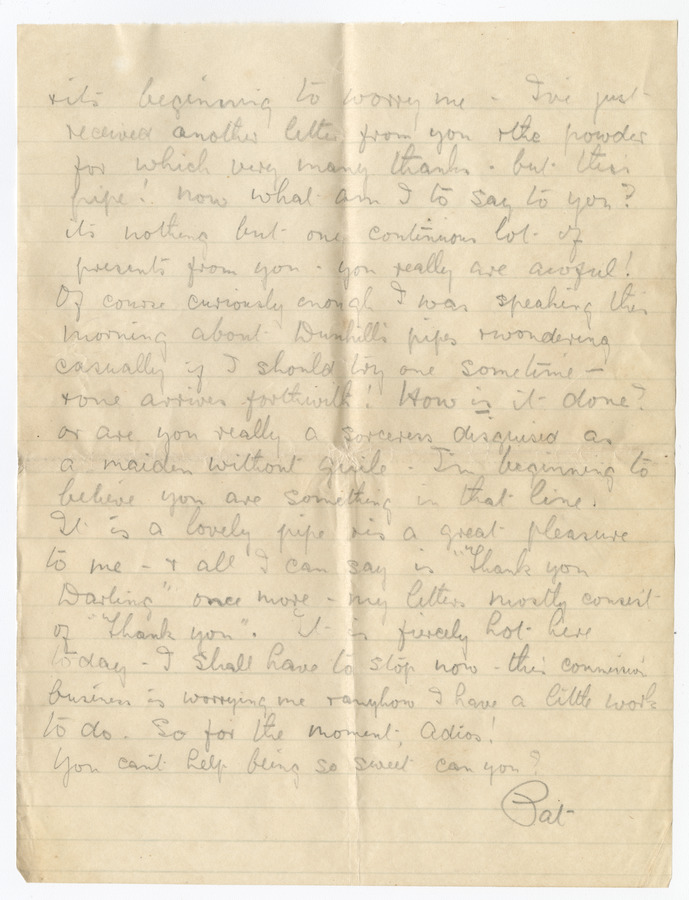 + its beginning to worry me - I've just
received another letter from you + the powder
for which very many thanks - but this
pipe! now what am I to say to you?
its nothing but one continuous lot of
presents from you - you really are awful!
Of course curiously enough I was speaking this
morning about Dunhill's pipes + wondering
casually if I should try one sometime -
+ one arrives forthwith! How is it done?
or are you really a sorceress disguised as
a maiden without guile - I'm beginning to
believe you are something in that line.
It is a lovely pipe + is a great pleasure
to me - + all I can say is "Thank you
Darling" once more - my letters mostly consist
of "Thank you". It is fiercely hot here
today - I shall have to stop now - this commission
business is worrying me + anyhow I have a little work
to do. So for the moment, Adios!
You can't help being so sweet can you?
Pat